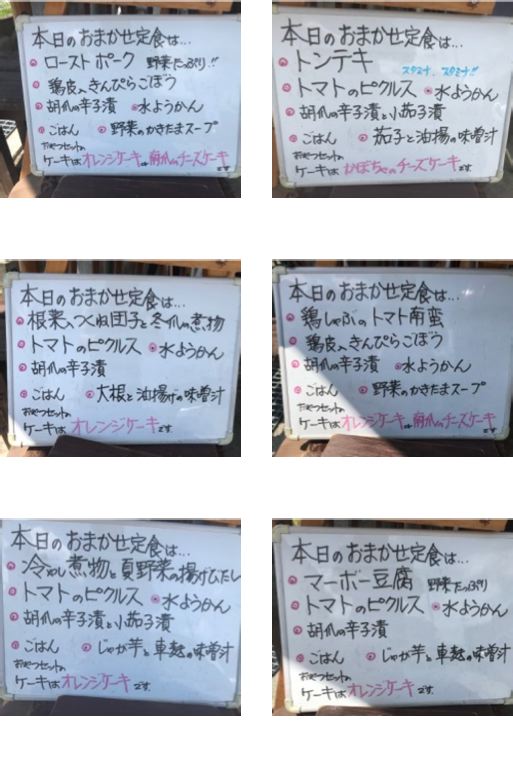 本日のおまかせ定食は...
ローストポーク 野菜たっぷり!!
鶏皮入きんぴらごぼう
胡瓜の辛子漬 水ようかん
ごはん 野菜のかきたまスープ
おやつセットの
ケーキはオレンジケーキor南瓜のチーズケーキです
本日のおまかせ定食は...
トンテキ スタミナ、スタミナ!!
トマトのピクルス 水ようかん
胡瓜の辛子漬と小茄子漬
ごはん 茄子と油揚の味噌汁
おやつセットの
ケーキはかぼちゃのチーズケーキです.
本日のおまかせ定食は...
根菜入つくね団子と冬瓜の煮物
トマトのピクルス 水ようかん
胡瓜の辛子漬
ごはん 大根と油揚げの味噌汁
おやつセットの
ケーキはオレンジケーキです.
本日のおまかせ定食は...
鶏しゃぶのトマト南蛮
鶏皮入きんぴらごぼう
胡瓜の辛子漬 水ようかん
ごはん 野菜のかきたまスープ
おやつセットの
ケーキはオレンジケーキor南瓜のチーズケーキです.
本日のおまかせ定食は...
冷やし煮物と夏野菜の揚げびたし
トマトのピクルス 水ようかん
胡瓜の辛子漬と小茄子漬
ごはん じゃが芋と車麩の味噌汁
おやつセットの
ケーキはオレンジケーキです.
本日のおまかせ定食は...
マーボー豆腐 野菜たっぷり
トマトのピクルス 水ようかん
胡瓜の辛子漬
ごはん じゃが芋と車麩の味噌汁
おやつセットの
ケーキはオレンジケーキです.